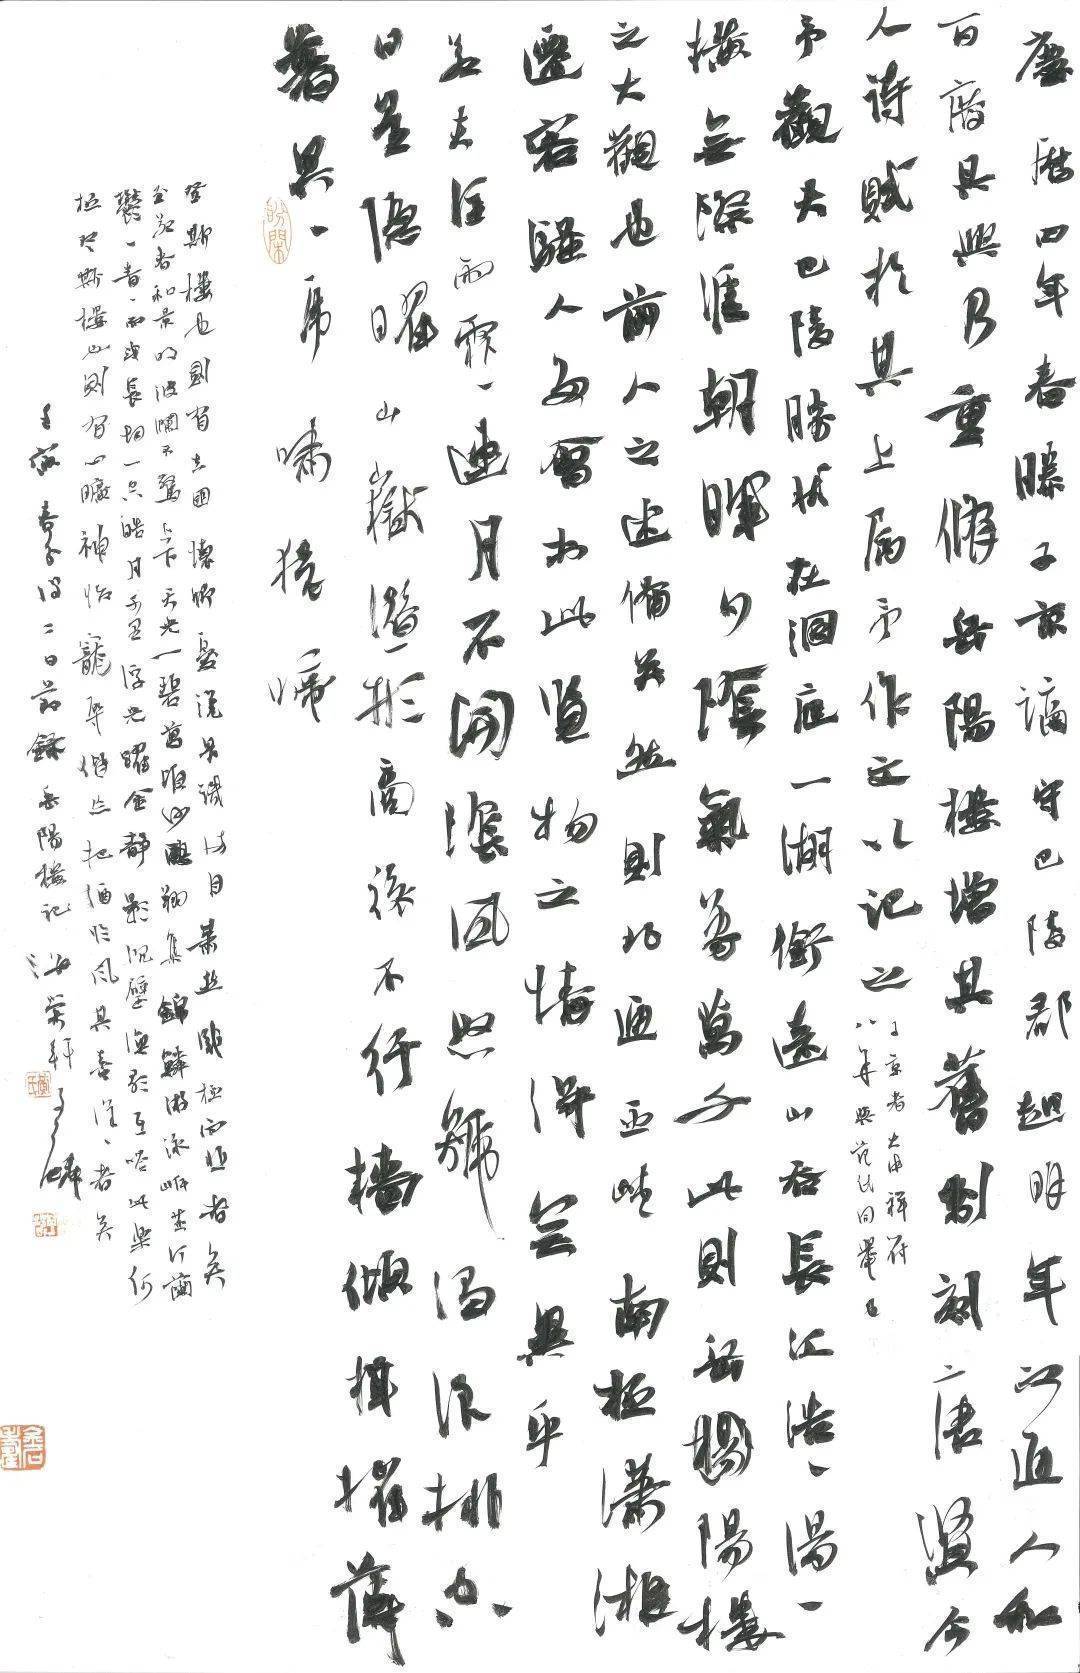 慶曆四年春滕子京謫守巴陵郡越明年政通人和
百廢具興乃重修岳陽樓增其舊制刻二唐賢今
人詩賦於其上屬予作文以記之
子京者大中祥符
八年與范氏同舉也
予觀夫巴陵勝狀在洞庭一湖銜遠山吞長江浩、湯、
橫無際涯朝暉夕陰氣象萬千此則岳楊陽樓
之大觀也前人之述備矣然則北通巫峽南極瀟湘
遷客騷人多會於此覽物之情得無異乎
若夫淫雨霏、連月不開陰風怒號濁浪排空
日星隱曜山嶽潛形商旅不行檣傾楫摧薄
暮冥、虎嘯猿啼
登斯樓也則有去國懷鄉憂讒畏譏滿目蕭然感極而悲者矣
至若春和景明波瀾不驚上下天光一碧萬頃沙鷗翔集錦鱗游泳岸芷汀蘭
鬱、青、而或長煙一空皓月千里浮光躍金靜影沉璧漁歌互答此樂何
極登斯樓也則有心曠神怡寵辱偕忘把酒臨風其喜洋、者矣
壬寅二日節錄岳陽樓記